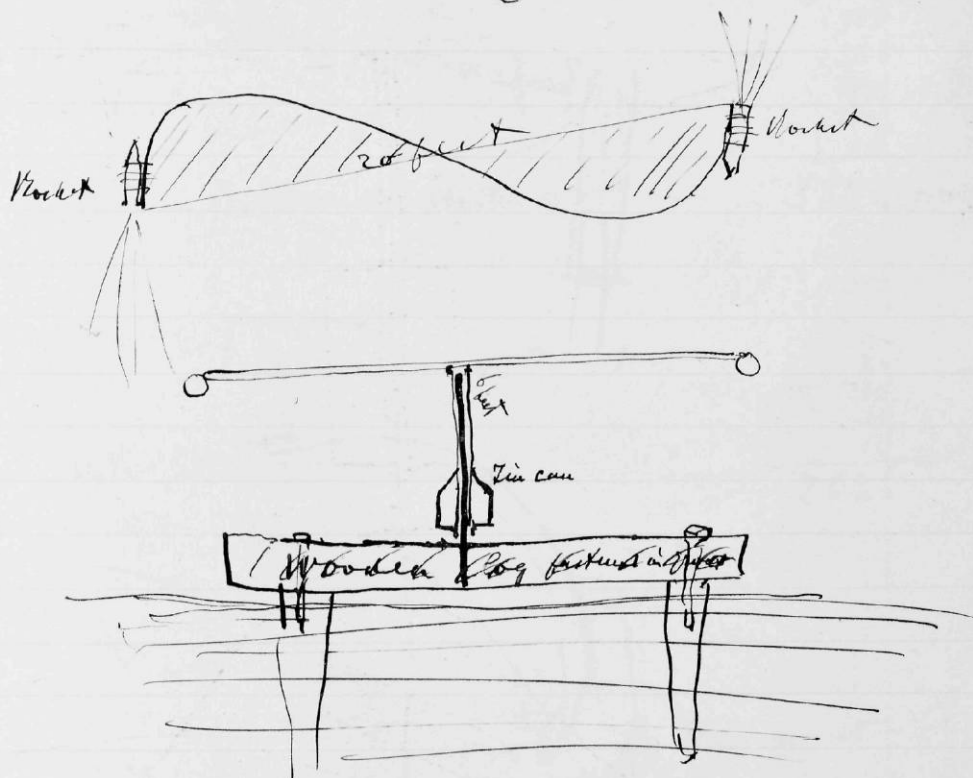 Rocket
20 feet
Rocket
feet
Tin can
Wooden Log fastened in